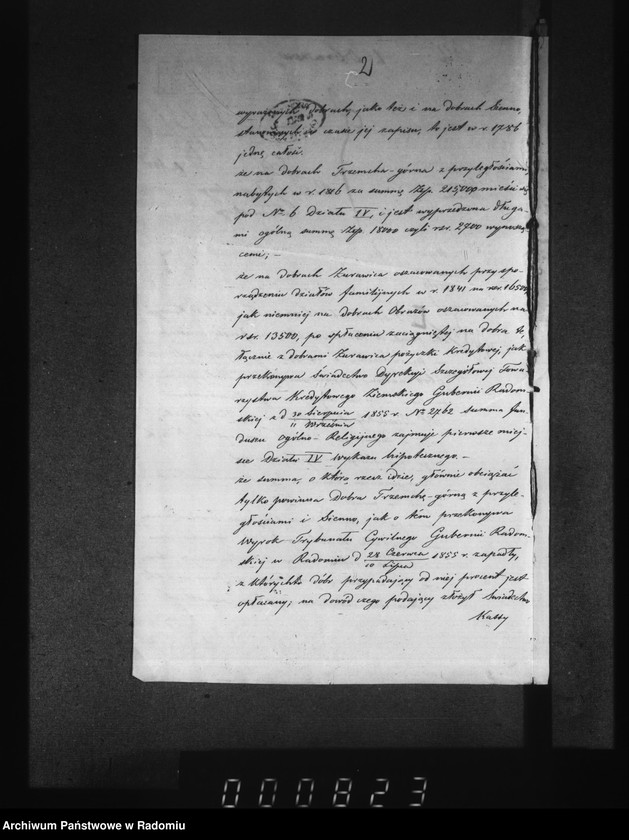 2
wyrażonych dobrach, jako też i na dobrach Sienno,
stanowiących w czasie jej zapisu, to jest w r. 1786
jednę całość.
że na dobrach Trzemcha-górna z przyległościami,
nabytych w r. 1816 za summę Złp. 215,000 mieści się
pod Nr 6 Działu IV, i jest wyprzedzona długa-
mi ogólną summę Złp. 18000 czyli rsr. 2700 wynoszą-
cemi; –
że na dobrach Żurawica oszacowanych przy spo-
rządzeniu działów familijnych w r. 1841 na rsr. 16500
jak niemniej na dobrach Obrazów oszacowanych na
rsr. 13500, po spłaceniu zaciągniętej na dobra te,
łącznie z dobrami Żurawica pożyczki Kredytowej, jak
przekonywa Świadectwo Dyrekcji Szczegółowej Towa-
rzystwa Kredytowego Ziemskiego Gubernii Radom-
skiej z d 30 Sierpnia / 11 Września 1855 r. Nr 2762 summa fun-
duszu ogólno-Religijnego zajmuje pierwsze miej-
sce Działu IV wykazu hipotecznego. –
że summa, o którą rzecz idzie, głównie obciążać
tylko powinna Dobra Trzemchę-górną z przyle-
głościami i Sienno, jak o tém przekonywa
Wyrok Trybunału Cywilnego Gubernii Radom-
skiej w Radomiu d 28 Czerwca / 10 Lipca 1855 r. zapadły,
z których to dóbr przypadający od niej procent jest
opłacany; na dowód czego podający złożył świadectwo
Kassy
000823
Archiwum Państwowe w Radomiu